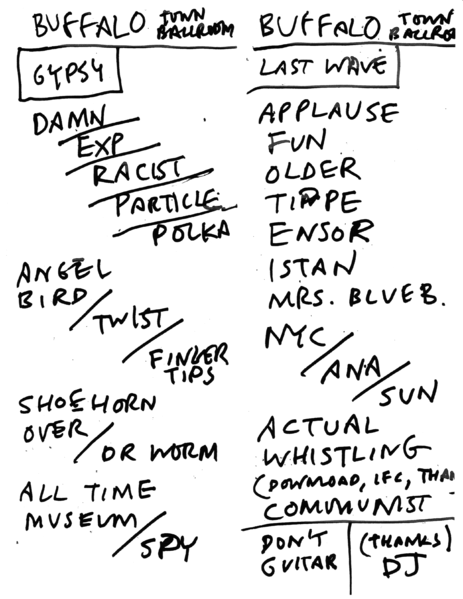 BUFFALO TOWN BALLROOM
GYPSY
DAMN
EXP
RACIST
PARTICLE
POLKA
ANGEL
BIRD/
TWIST/
FINGER
TIPS
SHOEHORN
OVER/
DR WORM
ALL TIME
MUSEUM/
SPY
BUFFALO TOWN
LAST WAVE
APPLAUSE
FUN
OLDER
ENSOR
ISTAN
MRS. BLUEB.
NYC/
ANA/
SUN
ACTUAL
WHISTLING
(DOWNLOAD, IFC,
COMMUNIST
DON'T
GUITAR
(THANKS)
DJ